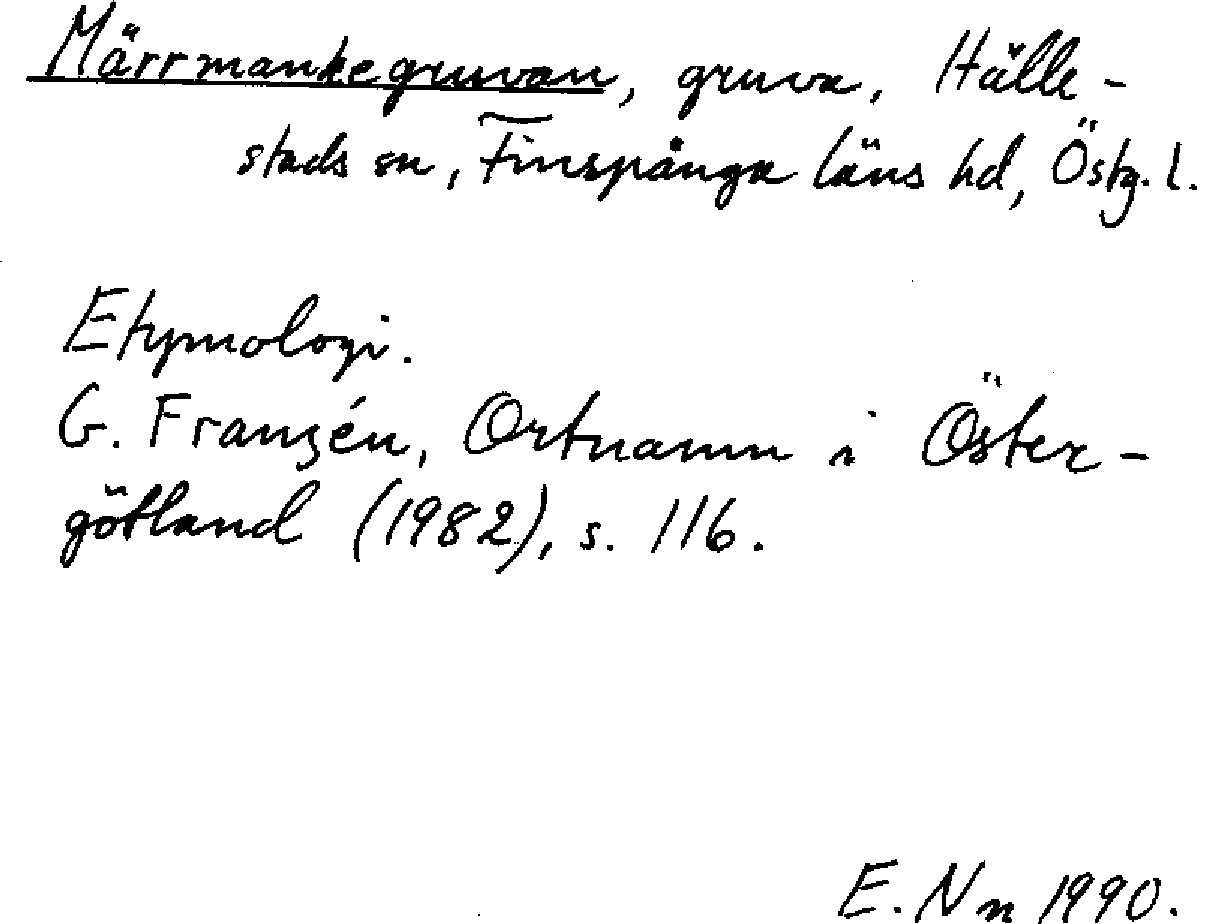 Märrmankegruvan, gruva, Hälle-
stads sn, Finspånga läns hd, Östg. l.
Etymologi.
G. Franzén, Ortnamn i Öster-
götland (1982), s. 116.
E. Nn 1990.